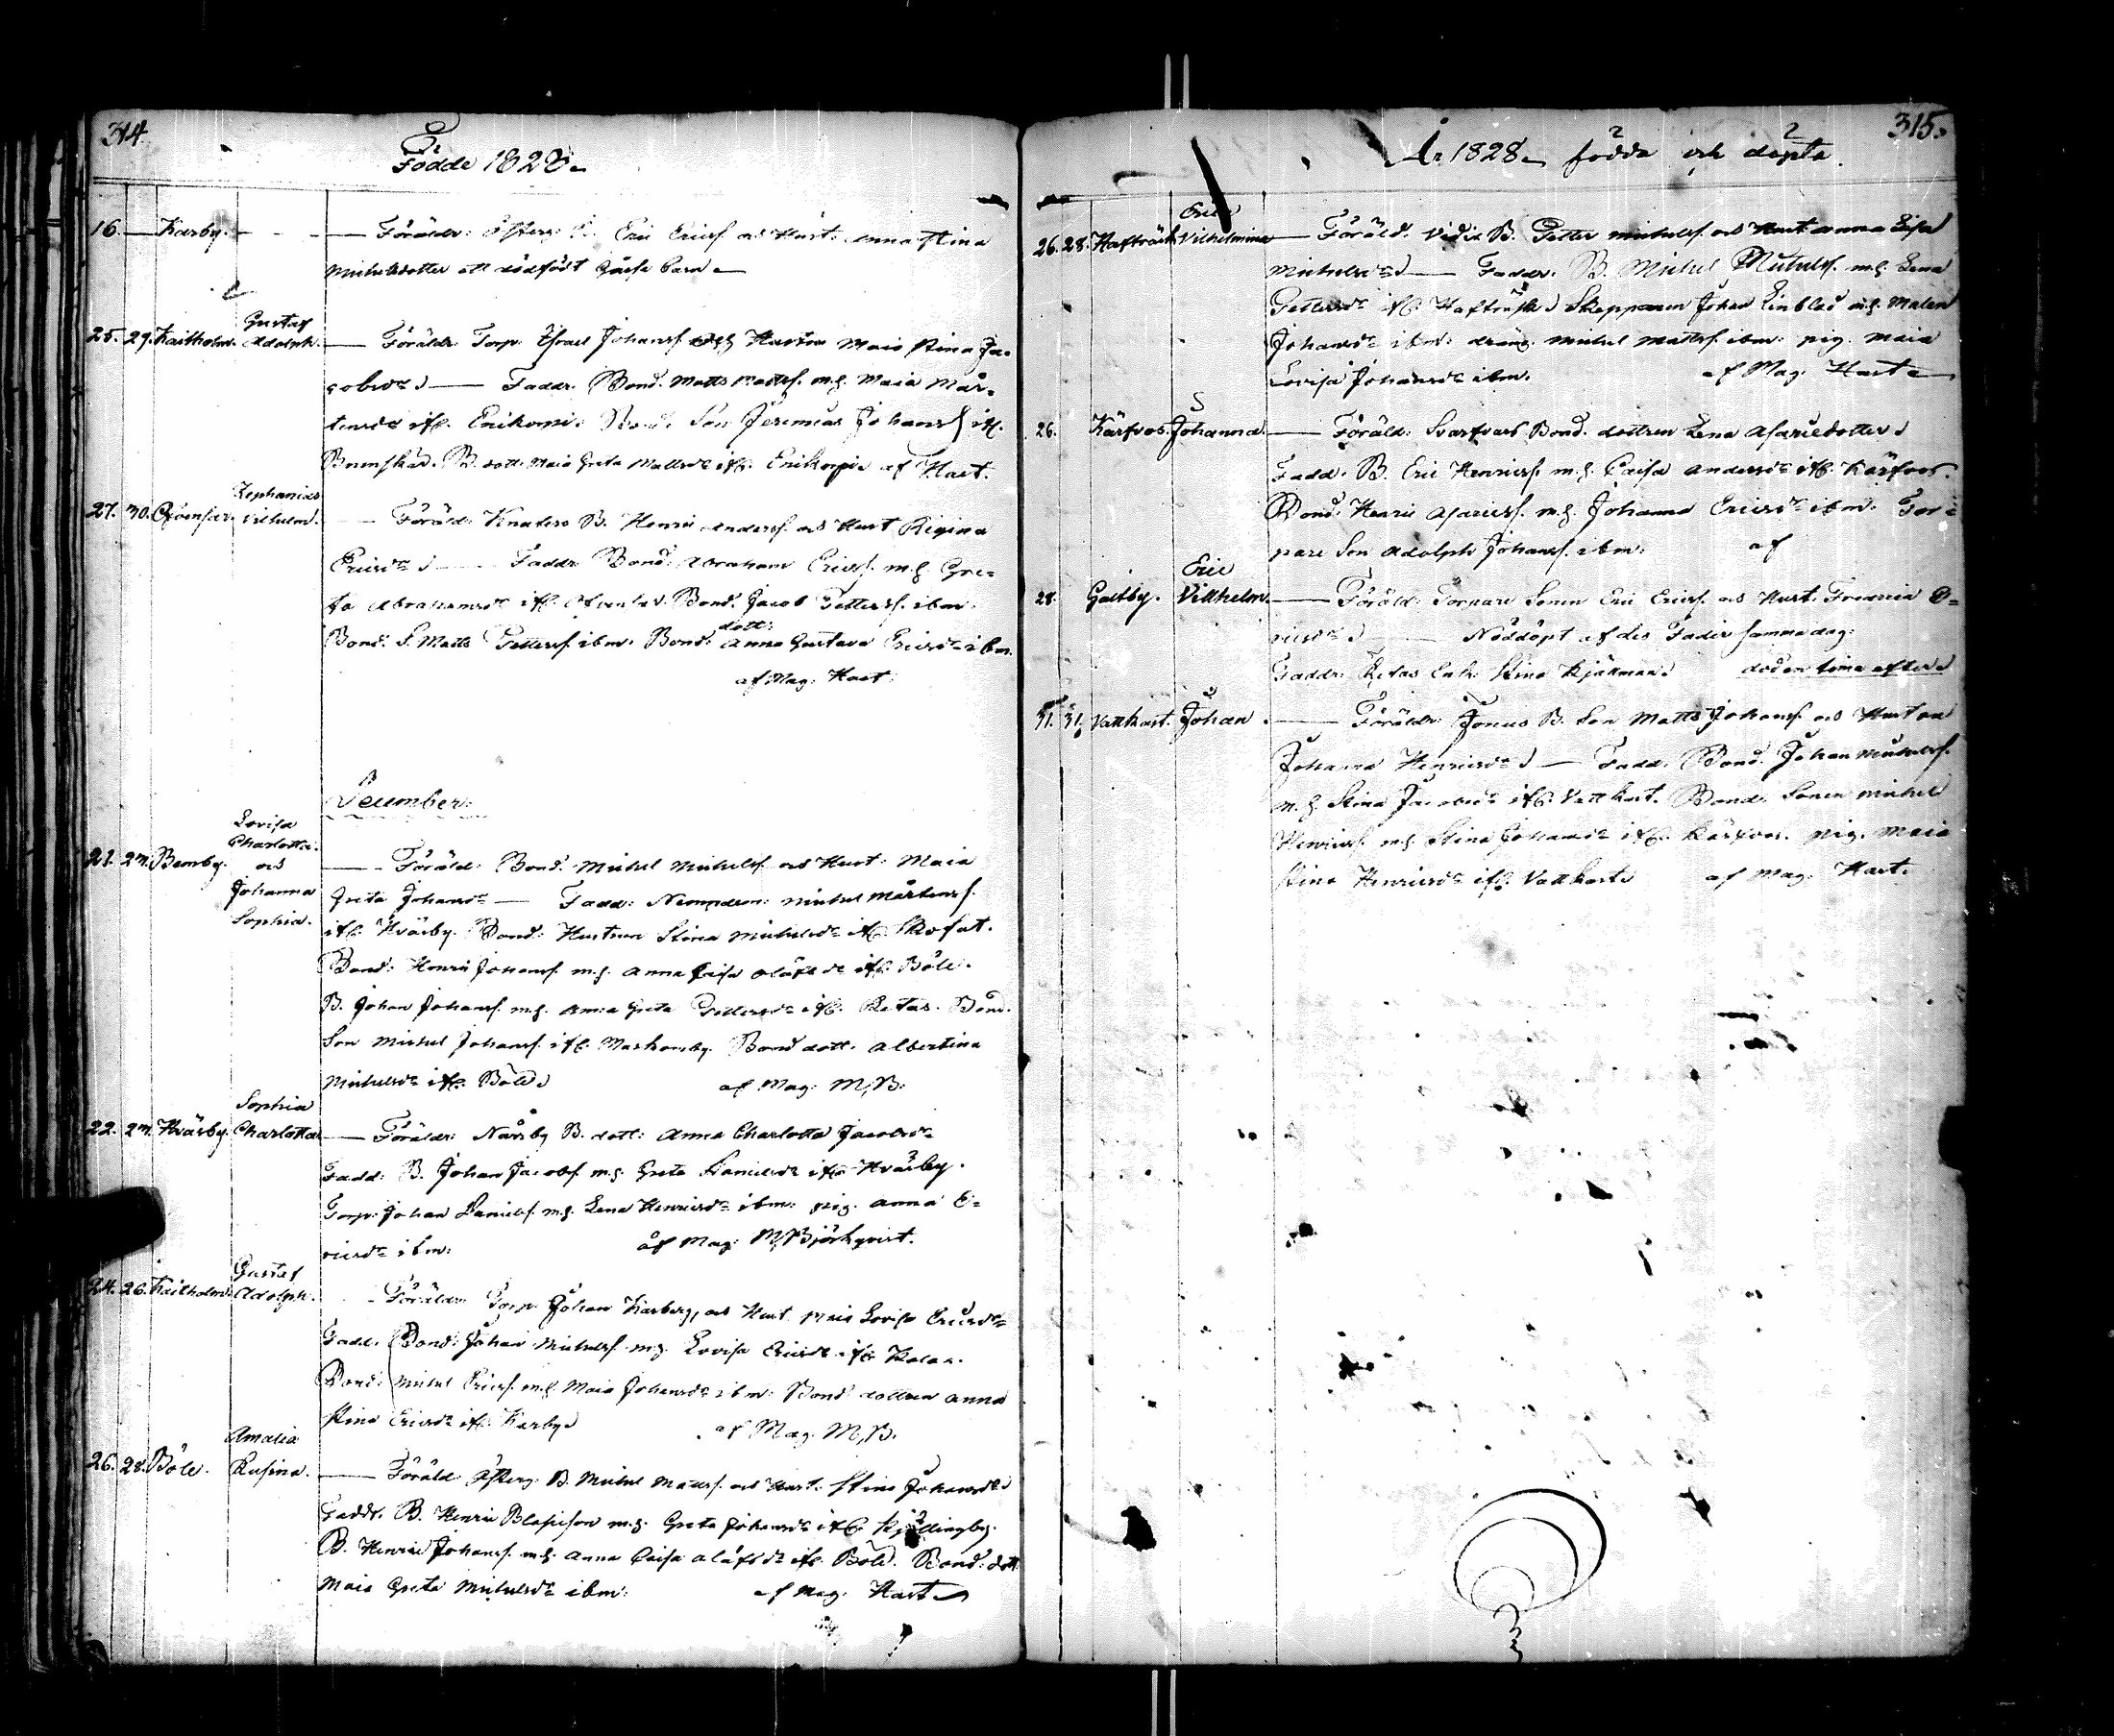 314.
Födde 1828.
16. — Karby. — Föräldr: Österg: B. Eric Ericss. och Hust: Anna Stina
Michelsdotter ett dödfödt Gåsse barn
Gustaf
25. 29. Kaitholm. Adolph. — Föräldr. Torp. Israel Johanss. och Hustru Maia Stina Ja=
cobsdr — Faddr. Bond. Matts Mattss. m.h. Maia Mår=
tensdr ifr. Bond. Son Jeremias Johanss ifr.
B. dott. Maia Greta Mattsdr ifr. af Hast.
Zephanias
27. 30. Vilhelm. — Föräld: B. Henric Anderss. och Hust Regina
Ericsdr — Faddr Bond. Abraham Ericss. m.h. Gre=
ta Abrahamsdr ifr. Bond. Jacob Petterss. ibm.
dott:
Bond: S. Matts Petterss. ibm. Bond: Anna Gustava Ericsdr ibm.
af Mag: Hast.
December:
Lovisa
Charlotta.
21. 27. Bemby. och — Föräld: Bond: Michel Michelss. och Hust: Maia
Johanna Greta Johansdr — Fadd: Nämndem: Michel Mårtenss.
Sophia. ifr. Kvärby. Bond: Hustrun Stina Michelsdr ifr. Skofat.
Bond: Henric Johanss. m.h. Anna Caisa Olofsdr ifr. Böle.
B. Johan Johanss. m.h. Anna Greta Pettersdr ifr. Retas. Bond.
Son Michel Johanss. ifr. Bond dott. Albertina
Michelsdr ifr. Böle af Mag: M,B:
Sophia
22. 27. Kvärby. Charlotta — Föräldr: Nårsby B. dott: Anna Charlotta Jacobsdr
Fadd: B. Johan Jacobs. m.h. Greta Danielsdr ifr Kvärby.
Torp: Johan Daniels. m.h. Lena Henricsdr ibm: pig. Anna E=
ricsdr ibm: af Mag: M,Björkqvist.
Gustaf
24. 26. Kaitholm. Adolph. — Föräldr: Torp. Johan Karberg, och Hust Maia Lovisa Ericsdr
Fadd. Bond: Johan Michelss m.h. Lovisa Ericsdr ifr
Bond: Michel Ericss. m.h. Maia Johansdr ibm: Bond dottren Anna
Stina Ericsdr ifr. Karby af Mag. M,B.
Amalia
26. 28. Böle. Rusina. — Föräld: Österg: B. Michel Mattss. och Hust. Stina Johansdr
Faddr. B. Henric Blasieson m.h. Greta Johansdr ifr.
B. Henric Johanss. m.h. Anna Caisa Olofsdr ifr. Böle. Bond: dott
Maia Greta Michelsdr ibm: af Mag. Hast
315.
År 1828 födda och döpta.
26. 28. Hafträsk. Vilhelmina — Föräld. Vidix B. Petter Michelss. och Hust Anna Lisa
Michelsdr — Faddr. B. Michel Michelss. m.h. Lena
Pettersdr ifr. Hafträsk Skepparen Johan Einblad m.h. Malen
Johansdr ibm: dräng. Michel Mattss. ibm: pig. Maia
Lovisa Johansdr ibm. af Mag. Hast
26. Kärfvos. Johanna. — Föräld: Svarfvars Bond. dottren Lena Asariedotter
Fadd. B. Eric Henricss. m.h. Caisa Andersdr ifr. Kärfvos.
Bond: Henric Asariess. m.h. Johanna Ericsdr ibm. Tor=
pare Son Adolph Johanss. ibm: af
Eric
28. Galtby. Villhelm. — Föräld: Torpare Sonen Eric Ericss. och Hust. Fredrica E=
ricsdr — Nöddöpt af des Fader samma dag:
Faddr: Retas Enk: Stina död en tima efter
31. 31. Vattkast. Johan. — Föräldr: Jonus B. Son Matts Johanss. och Hustru
Johanna Henricsdr — Fadd: Bond. Johan Michelss.
m.h. Stina Jacobsdr ifr. Vattkast. Bond: Sonen Michel
Henricss m.h. Stina Johansdr ifr. Kärfvos. pig. Maia
Stina Henricsdr ifr. Vattkast af Mag: Hast.